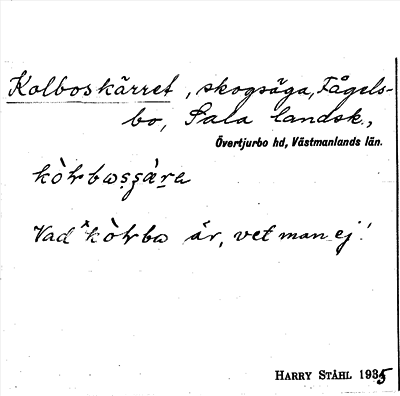 Kolboskärret, skogsäga, Fågels-
bo, Sala landsk.,
Övertjurbo hd, Västmanlands län.
Vad är, vet man ej!
HARRY STÅHL 1935